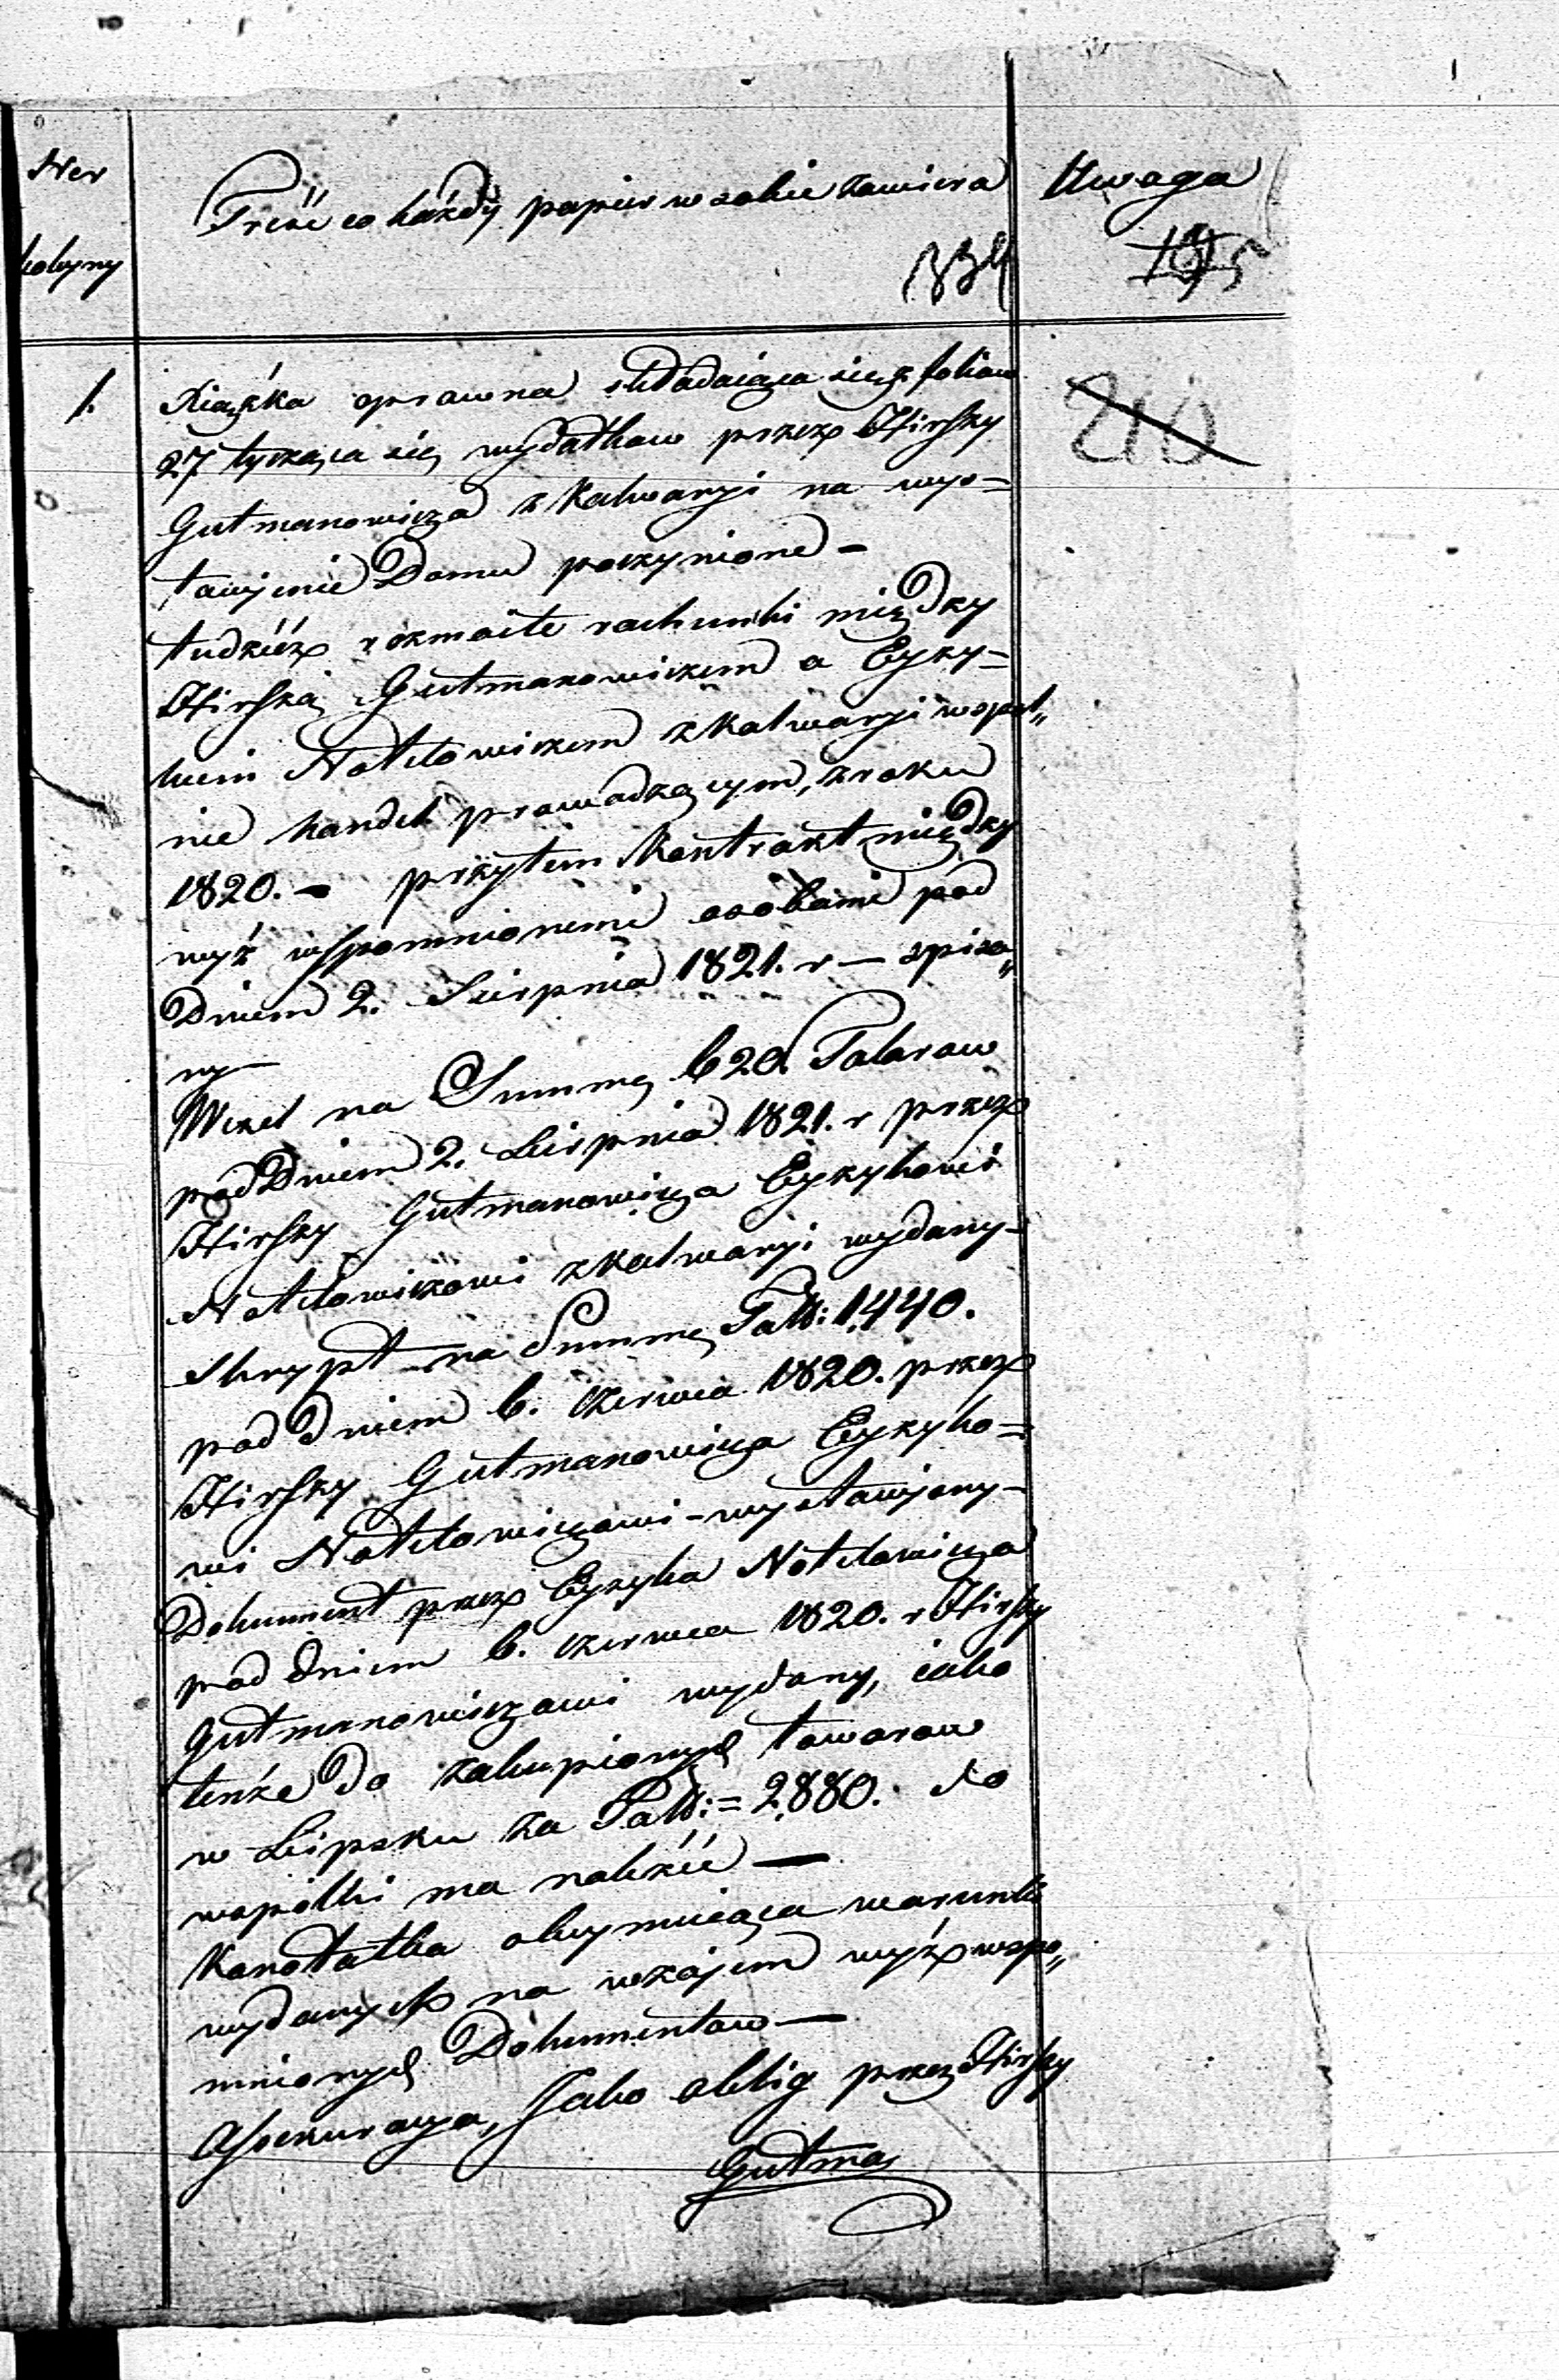 Ner
kolyny
Treść co każdy papier w sobie zawiera
Uwaga
334
195
1.
Xiążka oprawna składaiąca się z foliow
210
27 tycząca się wydatkow przez Hirszy
Gutmanowicza z Kalwaryi na wys=
tawienie Domu poczynione –
tudzież rozmaite rachunki między
Hirszą Gutmanowiczem a Eyzy=
kiem Notelowiczem z Kalwaryi wspol„
nie handel prowadzącym, z roku
1820. – przytem Kontrakt między
wyż wspomnionemi osobami pod
Dniem 2. Sierpnia 1821. r – spisa„
ny –
Wexel na Summę 620. Talarow
pod Dniem 2. Sierpnia 1821. r przez
Hirszy Gutmanowicza Eyzykowi
Notelowiczowi z Kalwaryi wydany –
Skrypt na Summę Tall: 1,440.
pod Dniem 6. Czerwca 1820. przez
Hirszy Gutmanowicza Eyzyko=
wi Notelowiczowi – wystawiony –
Dokument przez Eyzyka Notelowicza
pod dniem 6. Czerwca 1820. r Hirszy
Gutmanowiczowi wydany, iako
tenże do zakupionych towarow
w Lipsku za Tall: = 2,880. do
wspólki ma należéć —
Konotatka obeymuiąca warunki
wydanych na wzajem wyż wspo„
mnionych Dokumentow —
Assekuracya, Jako oblig przez Hirszy
Gutma